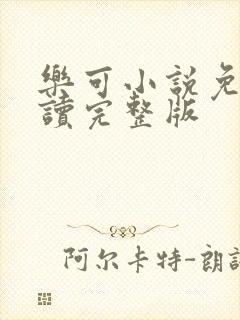 樂可小說免
讀完整版
阿尔卡特-朗